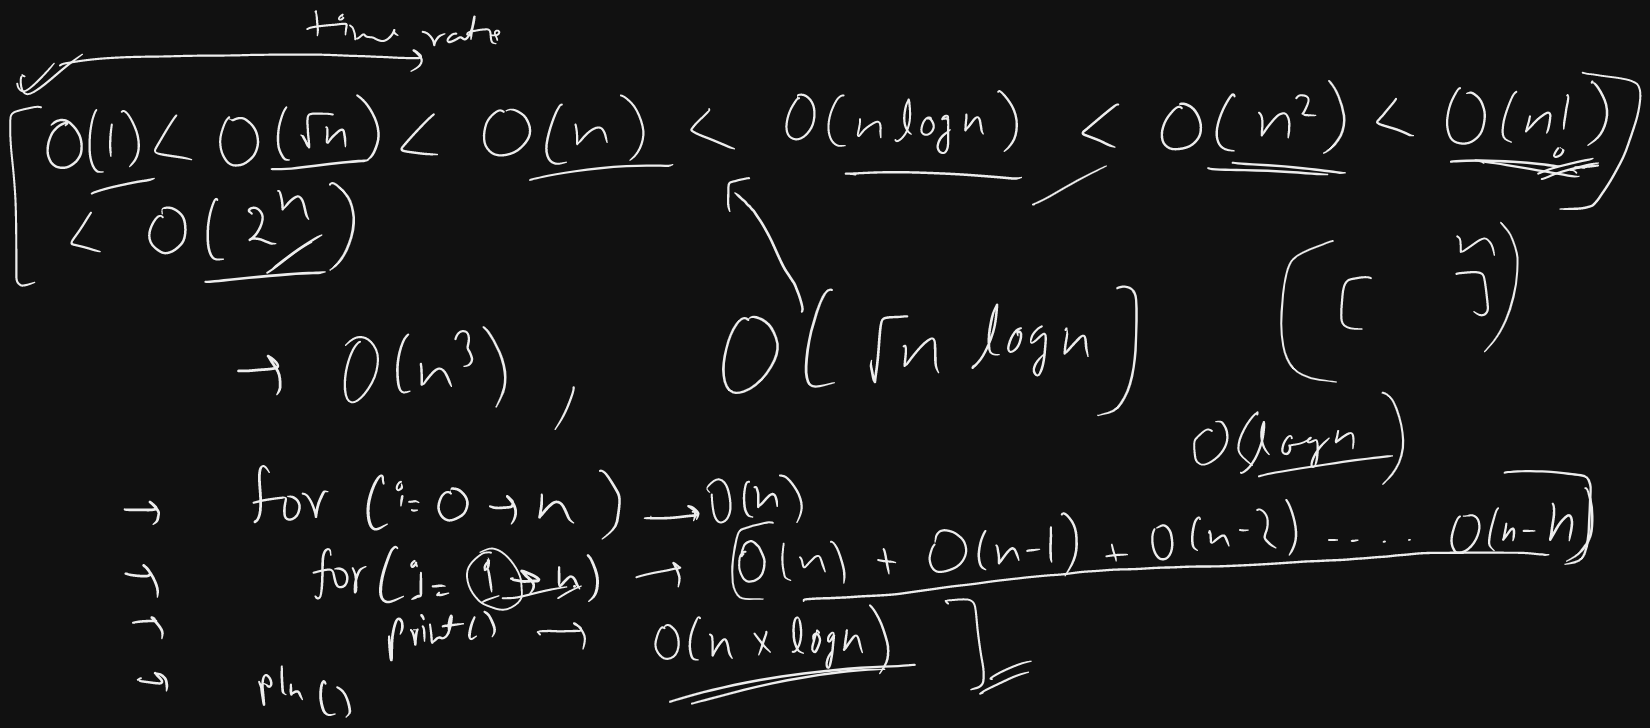 time rate
O(1) < O(√n) < O(n) < O(n logn) < O(n²) < O(n!)
< O(2ⁿ)
→ O(n³) , O(√n logn) ([ ]ⁿ)
O(logn)
→ for (i=0→n) → O(n)
→ for (j= i→n) → [O(n) + O(n-1) + O(n-2) ..... O(n-n)]
→ print() → O(n x logn) ]
→ pln()